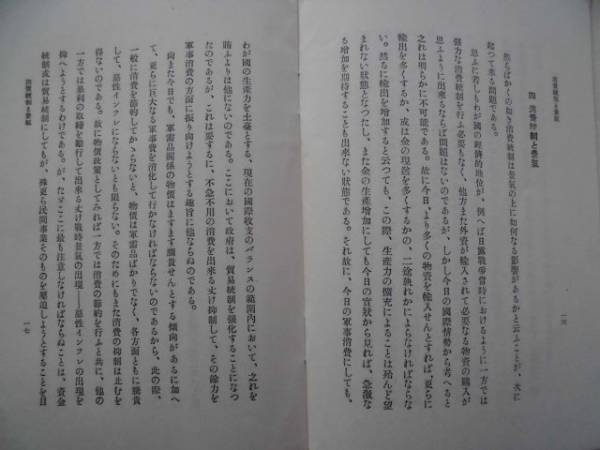 消費統制と景氣
一六
四 消費抑制と景氣
然らばかくの如き消費統制は景氣の上に如何なる影響があるかと云ふことが、次に
起つて來る問題である。
思ふに若しもわが國の經濟的地位が、例へば日露戰爭當時におけるように一方では
强力な消費統制を行ふ必要もなく、他方また外資が輸入されて必要なる物資の購入が
思ふように出來るならば問題はないのであるが、しかし今日の國際情勢から考へると
之れは明らかに不可能である。故に今日、より多くの物資を輸入せんとすれば、更らに
輸出を多くするか、或は金の現送を多くするかの、二途孰れかによらなければならな
い。然るに輸出を增加すると云つても、この際、生產力の擴充によることは殆んど望
まれない狀態となつたし、また金の生產增加にしても今日の實狀から見れば、急激な
る增加を期待することも出來ない狀態である。それ故に、今日の軍事消費にしても、
わが國の生產力を土臺とする、現在の國際收支のバランスの範圍內において、之れを
賄ふよりは他にないのである。ここにおいて政府は、貿易統制を强化することになつ
たのであるが、これは要するに、不急不用の消費を出來る丈け抑制して、その餘力を
軍事消費の方面に振り向けようとする趣旨に他ならぬのである。
尙また今日でも、軍需品關係の物價はますます騰貴せんとする傾向があるに加へ
て、更らに巨大なる軍事費を消化して行かなければならないのであるから、此の際、
一般に消費を節約してかゝらないと、物價は軍需品ばかりでなく、各方面ともに騰貴
して、惡性インフレにならないとも限らない。そのためにもまた消費の抑制は止むを
得ないのである。故に物價政策としてみれば一方では消費の節約を行ふと共に、他の
一方では暴利の取締を勵行して出來る丈け戰時景氣の出現――惡性インフレの出現を
抑へようとするわけである。が、たゞここに最も注意しなければならぬことは、資金
統制或は貿易統制にしても、殊更ら民間事業そのものを壓迫しようとすることを目
消費統制と景氣
一七